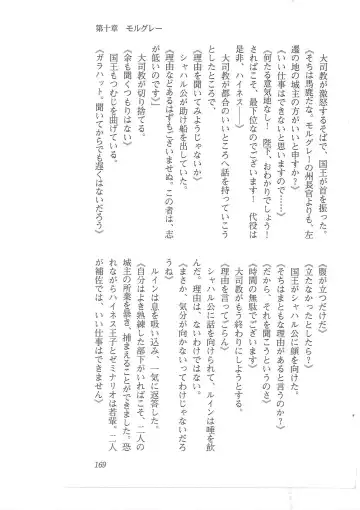 第十章　モルグレー
　大司教が激怒するそばで、国王が首を振った。
《そちは馬鹿だな。モルグレーの州長官よりも、左
遷の地の城主の方がいいと申すか？》
《いい仕事はできないと思いますので……》
《何たる意気地なし！　陛下、おわかりでしょう！
さればこそ、最下位なのでございます！　代役は
是非、ハイネスー
　大司教が都合のいいところへ話を持っていこう
としたところで、
　シャハル公が助け船を出していた。
《理由を聞いてみようじゃないか》
《理由などあるはずもございませぬ。この者は、志
が低いのです》
　大司教が切り捨てる。
《余も聞くつもりはない》
　国王もつむじを曲げている。
《ガラハット、聞いてからでも遅くはないだろう》
《腹が立つだけだ》
《立たなかったとしたら？》
　国王がシャハル公に顔を向けた。
《そちはまともな理由があると言うのか？》
《だから、それを聞こうというのさ》
《時間の無駄でございます》
　大司教がもう終わりにしようとする。
《理由を言ってごらん》
　シャハル公に話を向けられて、ルインは唾を飲
んだ。理由は、ないわけではない。
《まさか、気分が向かないってわけじゃないだろ
うね》
　ルインは息を吸い込み、一気に返答した。
《自分はよき熟練した部下がいればこそ、二人の
城主の所業を暴き、捕まえることができました。恐
れながらハイネス王子とゼミナリオは若輩。二人
が補佐では、いい仕事はできません》
169